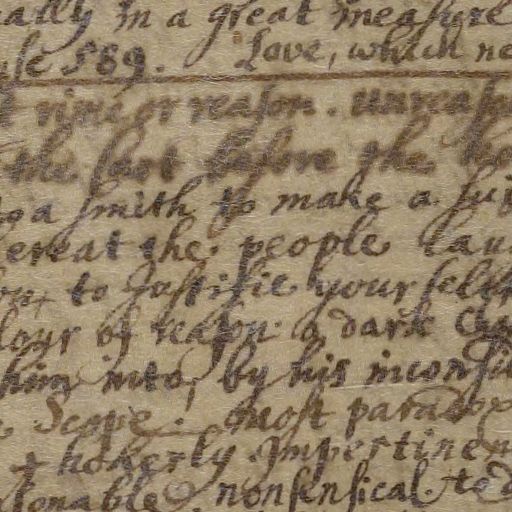 ally in a great measure
use 589. Love, which ne
rime or reason. unreaso
the cart before the ho
to a smith to make a sui
ereat the people lau
to justifie your self
lour of reason. a dark
him into, by his inconsi
Scope. most paradox
+ hokerly. Impertinen
sonable. nonsensical. ted